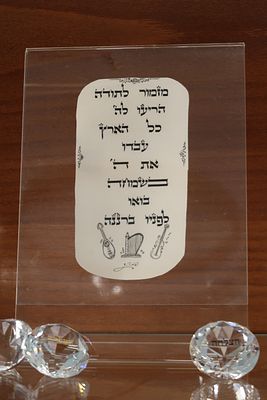 מזמור לתודה
הריעו לה'
כל הארץ
עבדו
את ה'
בשמחה
בואו
לפניו ברננה
הצלחה